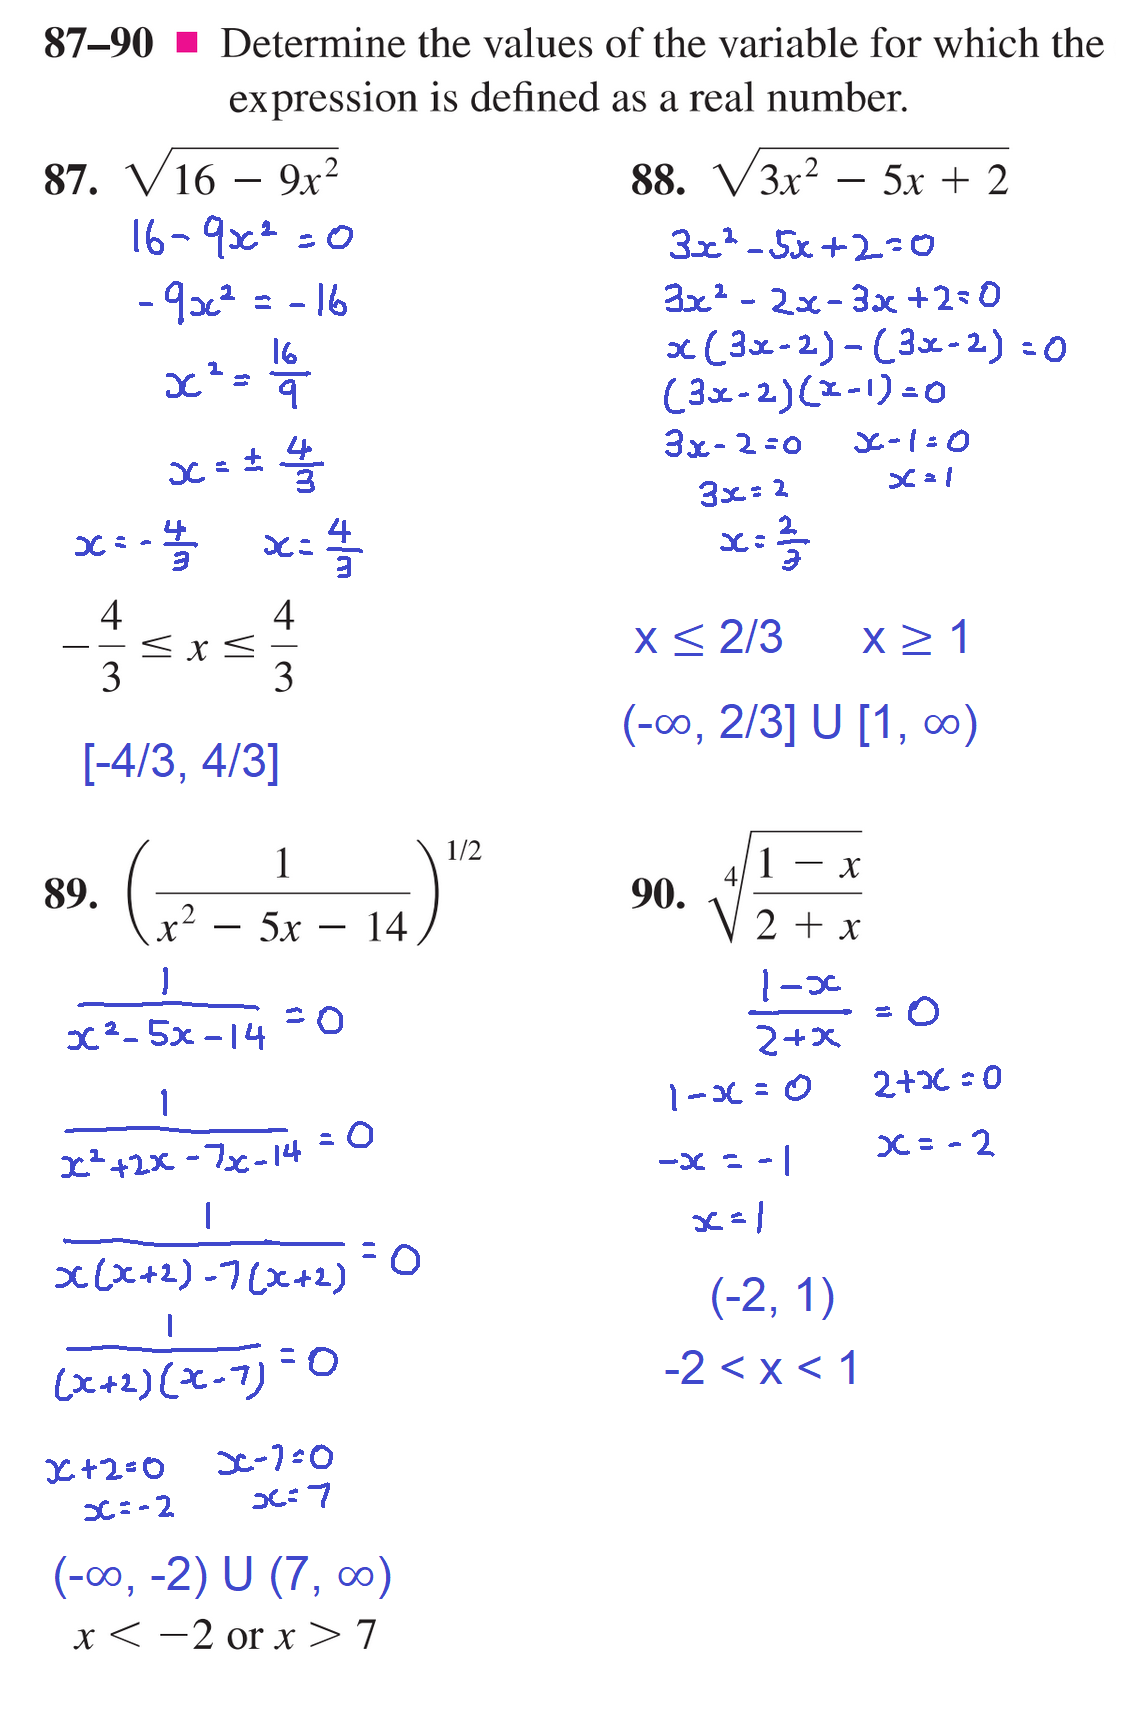 87–90 ■ Determine the values of the variable for which the
expression is defined as a real number.
87. √(16 − 9x²)
16 - 9x² = 0
-9x² = -16
x² = 16/9
x = ± 4/3
x = -4/3 x = 4/3
−4/3 ≤ x ≤ 4/3
[-4/3, 4/3]
88. √(3x² − 5x + 2)
3x² - 5x + 2 = 0
3x² - 2x - 3x + 2 = 0
x(3x - 2) - (3x - 2) = 0
(3x - 2)(x - 1) = 0
3x - 2 = 0 x - 1 = 0
3x = 2 x = 1
x = 2/3
x ≤ 2/3 x ≥ 1
(-∞, 2/3] U [1, ∞)
89. (1/(x² − 5x − 14))^1/2
1/(x² - 5x - 14) = 0
1/(x² + 2x - 7x - 14) = 0
1/(x(x+2) - 7(x+2)) = 0
1/((x+2)(x-7)) = 0
x + 2 = 0 x - 7 = 0
x = -2 x = 7
(-∞, -2) U (7, ∞)
x < −2 or x > 7
90. ⁴√((1 − x)/(2 + x))
(1 - x)/(2 + x) = 0
1 - x = 0 2 + x = 0
-x = -1 x = -2
x = 1
(-2, 1)
-2 < x < 1